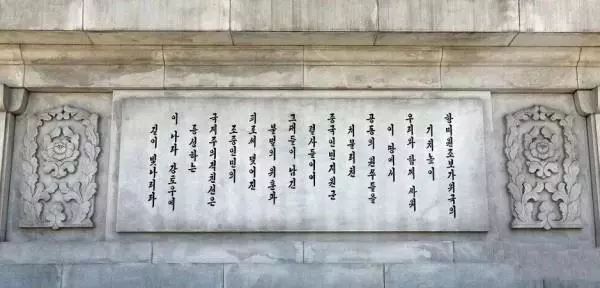 항미원조보가위국의
기치높이
우리와 함께 싸워
이 땅에서
공동의 원쑤들을
쳐물리친
중국인민지원군
렬사들이여
그대들이 남긴
불멸의 위훈과
피로써 맺어진
조중인민의
국제주의적친선은
륭성하는
이 나라 강토우에
길이 빛나리라